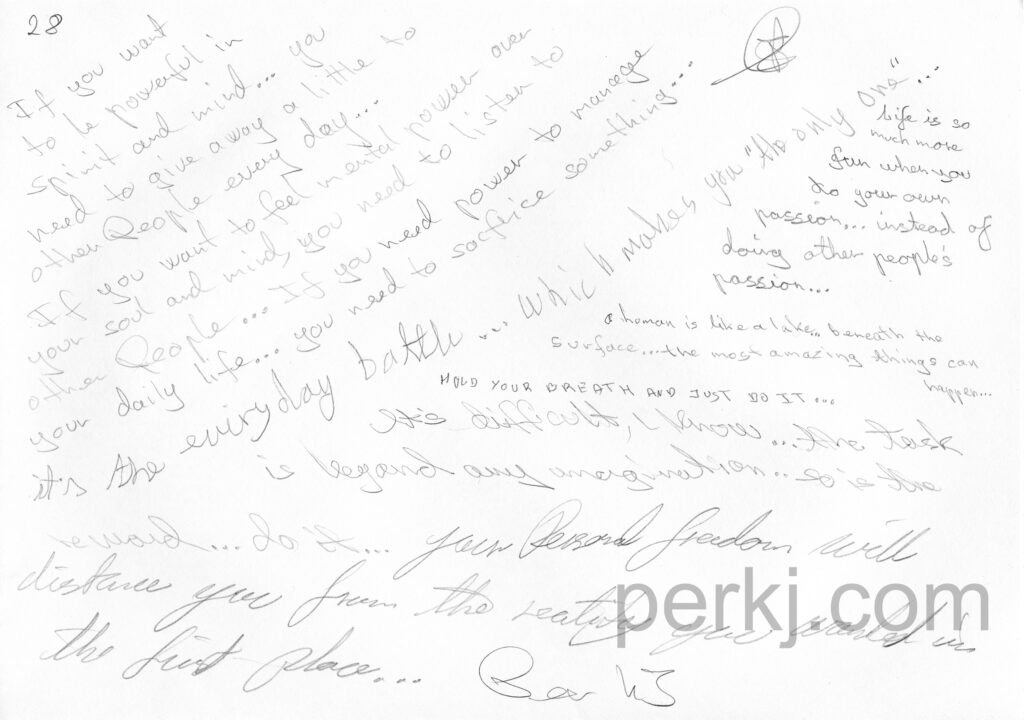 28
If you want
to be powerful in
spirit and mind... you
need to give away a little to
other People every day...
If you want to feel mental power over
your soul and mind, you need to listen to
other People... If you need power to manage
your daily life... you need to sacfrice something...
it's the everyday battle... which makes you "the only one"...
Life is so
much more
fun when you
do your own
passion... instead of
doing other people's
passion...
a human is like a lake... beneath the
surface... the most amazing things can
happen...
HOLD YOUR BREATH AND JUST DO IT...
It's difficult, I know... the task
is beyond any imagination... so is the
reward... do it... your Personal freedom will
distance you from the reality you wanted in
the first place...
perkj.com